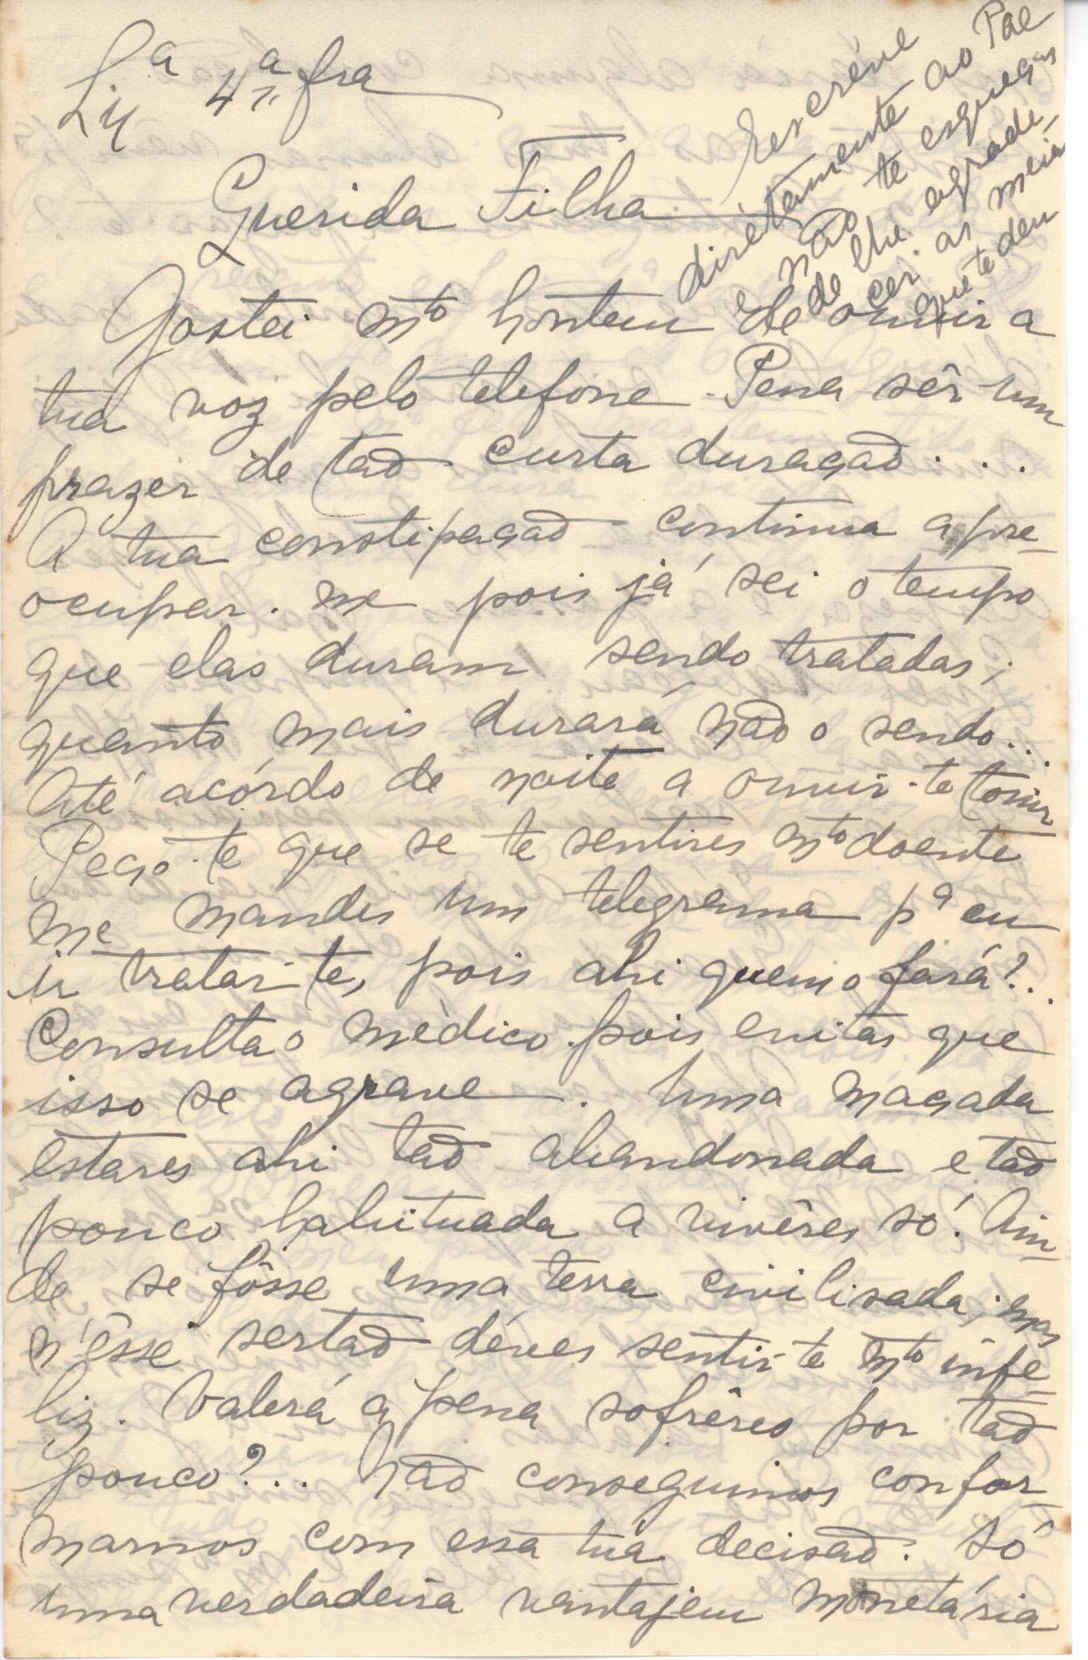 Lx.ª 4.ª fra
Escréve
dirétamente ao Pae
não te esqueças
de lhe agrade-
cer as meias
que te deu
Querida Filha
Gostei mto hontem de ouvir a
tua voz pelo telefone. Pena sêr um
prazer de tão curta duração...
A tua constipação continua a pre-
ocupar-me pois já sei o tempo
que elas duram sendo tratadas;
quanto mais durará não o sendo...
Até acórdo de noite a ouvir-te tossir
Peço-te que se te sentires mto doente
me mandes um telegrama pª eu
ir tratar-te, pois ahi quem o fará?..
Consulta o médico pois evitas que
isso se agrave. Uma maçada
estares ahi tão abandonada e tão
pouco habituada a vivêres só! Ain-
da se fôsse uma terra civilisada; mas
n'êsse sertão déves sentir-te mto infe-
liz. Valerá a pena sofrêres por tão
pouco?.. Não conseguimos confor-
marmos com essa túa decisão. Só
uma verdadeira vantajem monetária